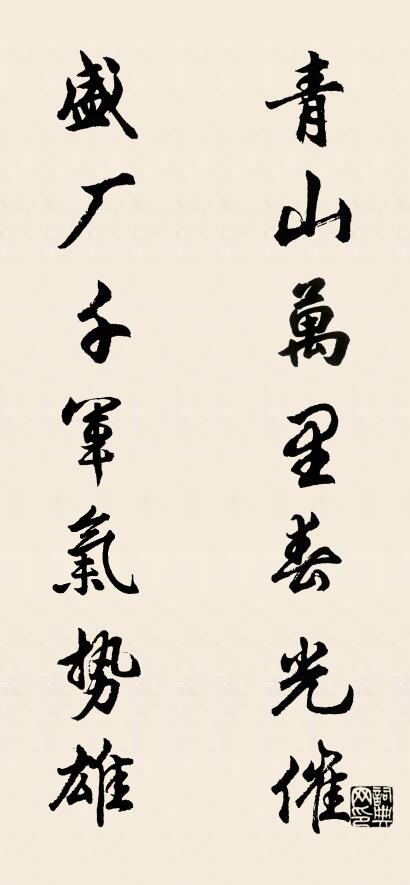 青山萬里春光催
盛厂千軍氣势雄
詞典
网印